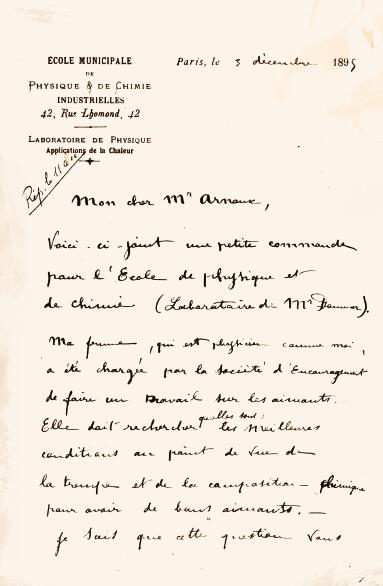 ÉCOLE MUNICIPALE
DE
PHYSIQUE & DE CHIMIE
INDUSTRIELLES
42, Rue Lhomond, 42
LABORATOIRE DE PHYSIQUE
Applications de la Chaleur
Paris, le 3 décembre 1895
Rép. le 11 déc
Mon cher Mr Arnoux,
Voici-ci-joint une petite commande
pour l'Ecole de physique et
de chimie (Laboratoire de Mr).
Ma femme, qui est physicien comme moi,
a été chargée par la société d'Encouragement
de faire un travail sur les aimants.
Elle doit rechercher quelles sont les meilleures
conditions au point de vue de
la trempe et de la composition chimique
pour avoir de bons aimants. —
Je sais que cette question vous